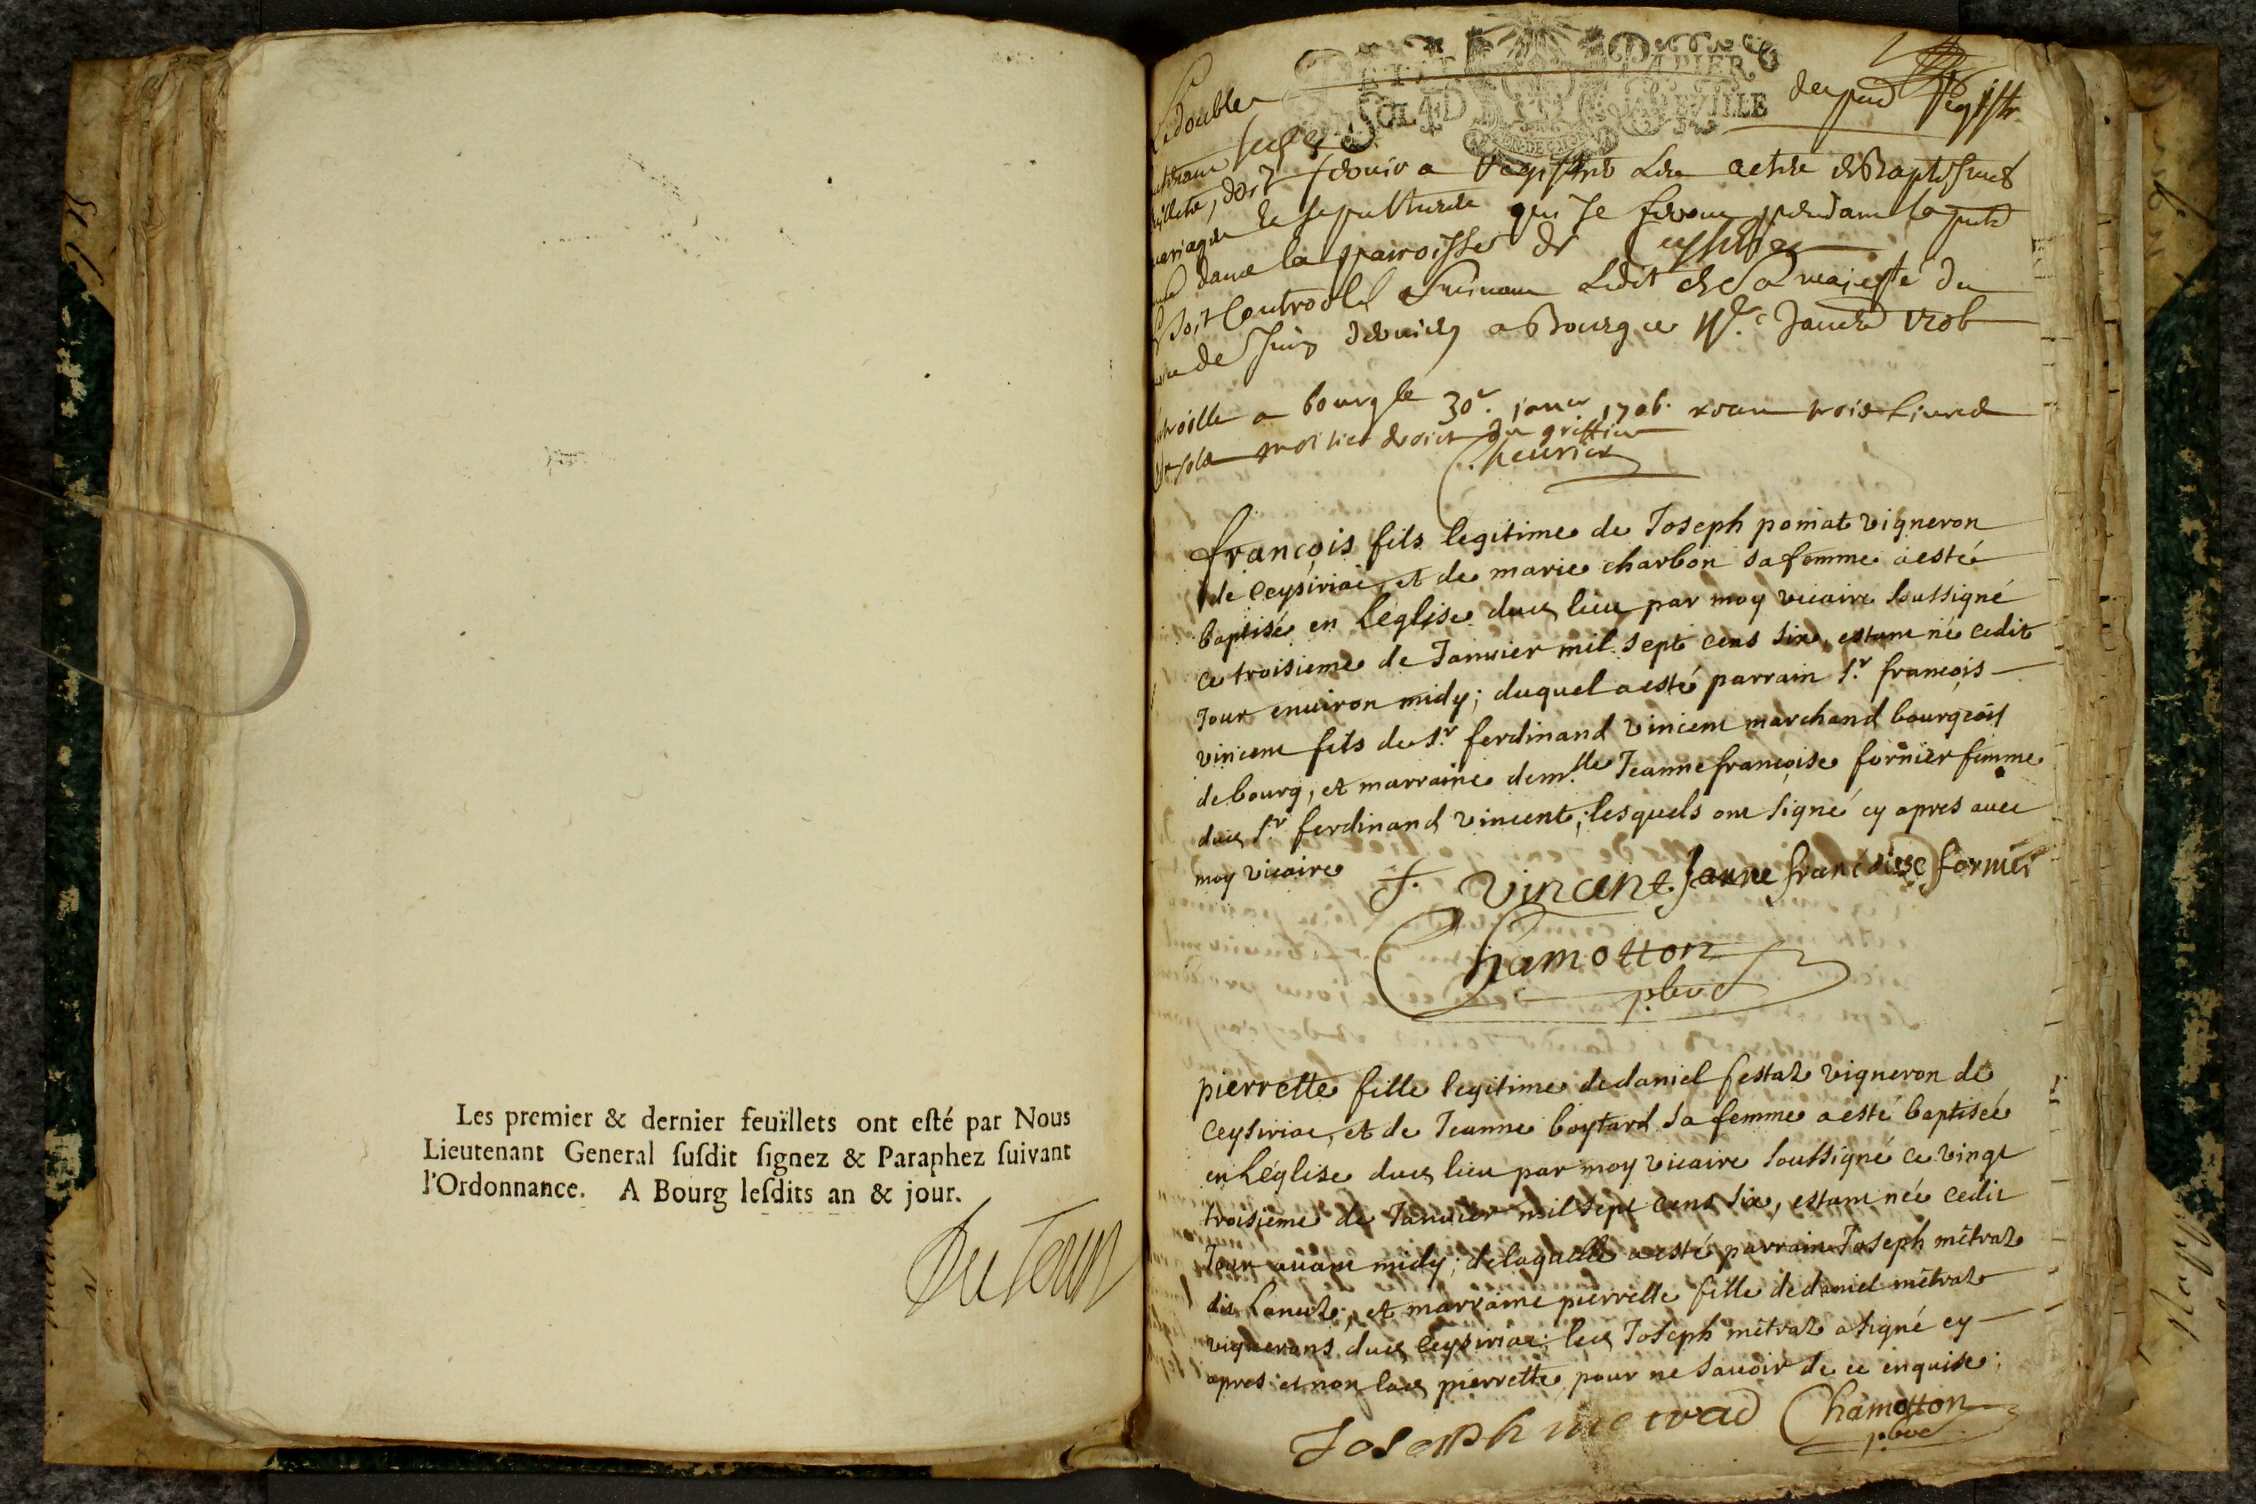 Les premier & dernier feuïllets ont eſté par Nous
Lieutenant General ſuſdit ſignez & Paraphez ſuivant
l'Ordonnance. A Bourg leſdits an & jour.
PAPIER
SOL 4 D
Le double
a Registre
mariages de sepulture qui se feront pendant la
dans la parroisse de
Soit Controolé Suivant Ledit de Sa majesté du
de Juin dernier a Bourg ce
a bourg le 30e. janer 1706. trois Livres
moitier droict du greffier
François fils legitime de Joseph poniat vigneron
de ceysiriac, et de marie charbon sa femme a esté
baptisé en Leglise dud lieu par moy vicaire soussigné
ce troisieme de Januier mil sept cens six, estant né cedit
Jour enuiron midy; duquel a esté parrain Sr. françois
vincent fils du Sr. ferdinand vincent marchand bourgeois
de bourg, et marraine demlle Jeanne françoise fornier femme
dud Sr ferdinand vincent, lesquels ont signé cy apres auec
moy vicaire f. vincent Janne francoise fornier
Chamotton
pbre
pierrette fille legitime de daniel festaz vigneron de
ceysiriac, et de Jeanne boytard sa femme a esté baptisée
en Léglise dud lieu par moy vicaire soussigné ce vingt
troisieme de Januier mil sept cens six, estant née cedit
Jour auant midy; de laquelle a esté parrain Joseph mêtraz
dit et marraine pierrette fille de daniel mêtraz
vignerons dud ceysiriac; led Joseph mêtraz a signé cy
apres et non lad pierrette pour ne sauoir de ce enquise;
Joseph metrad Chamotton
pbre